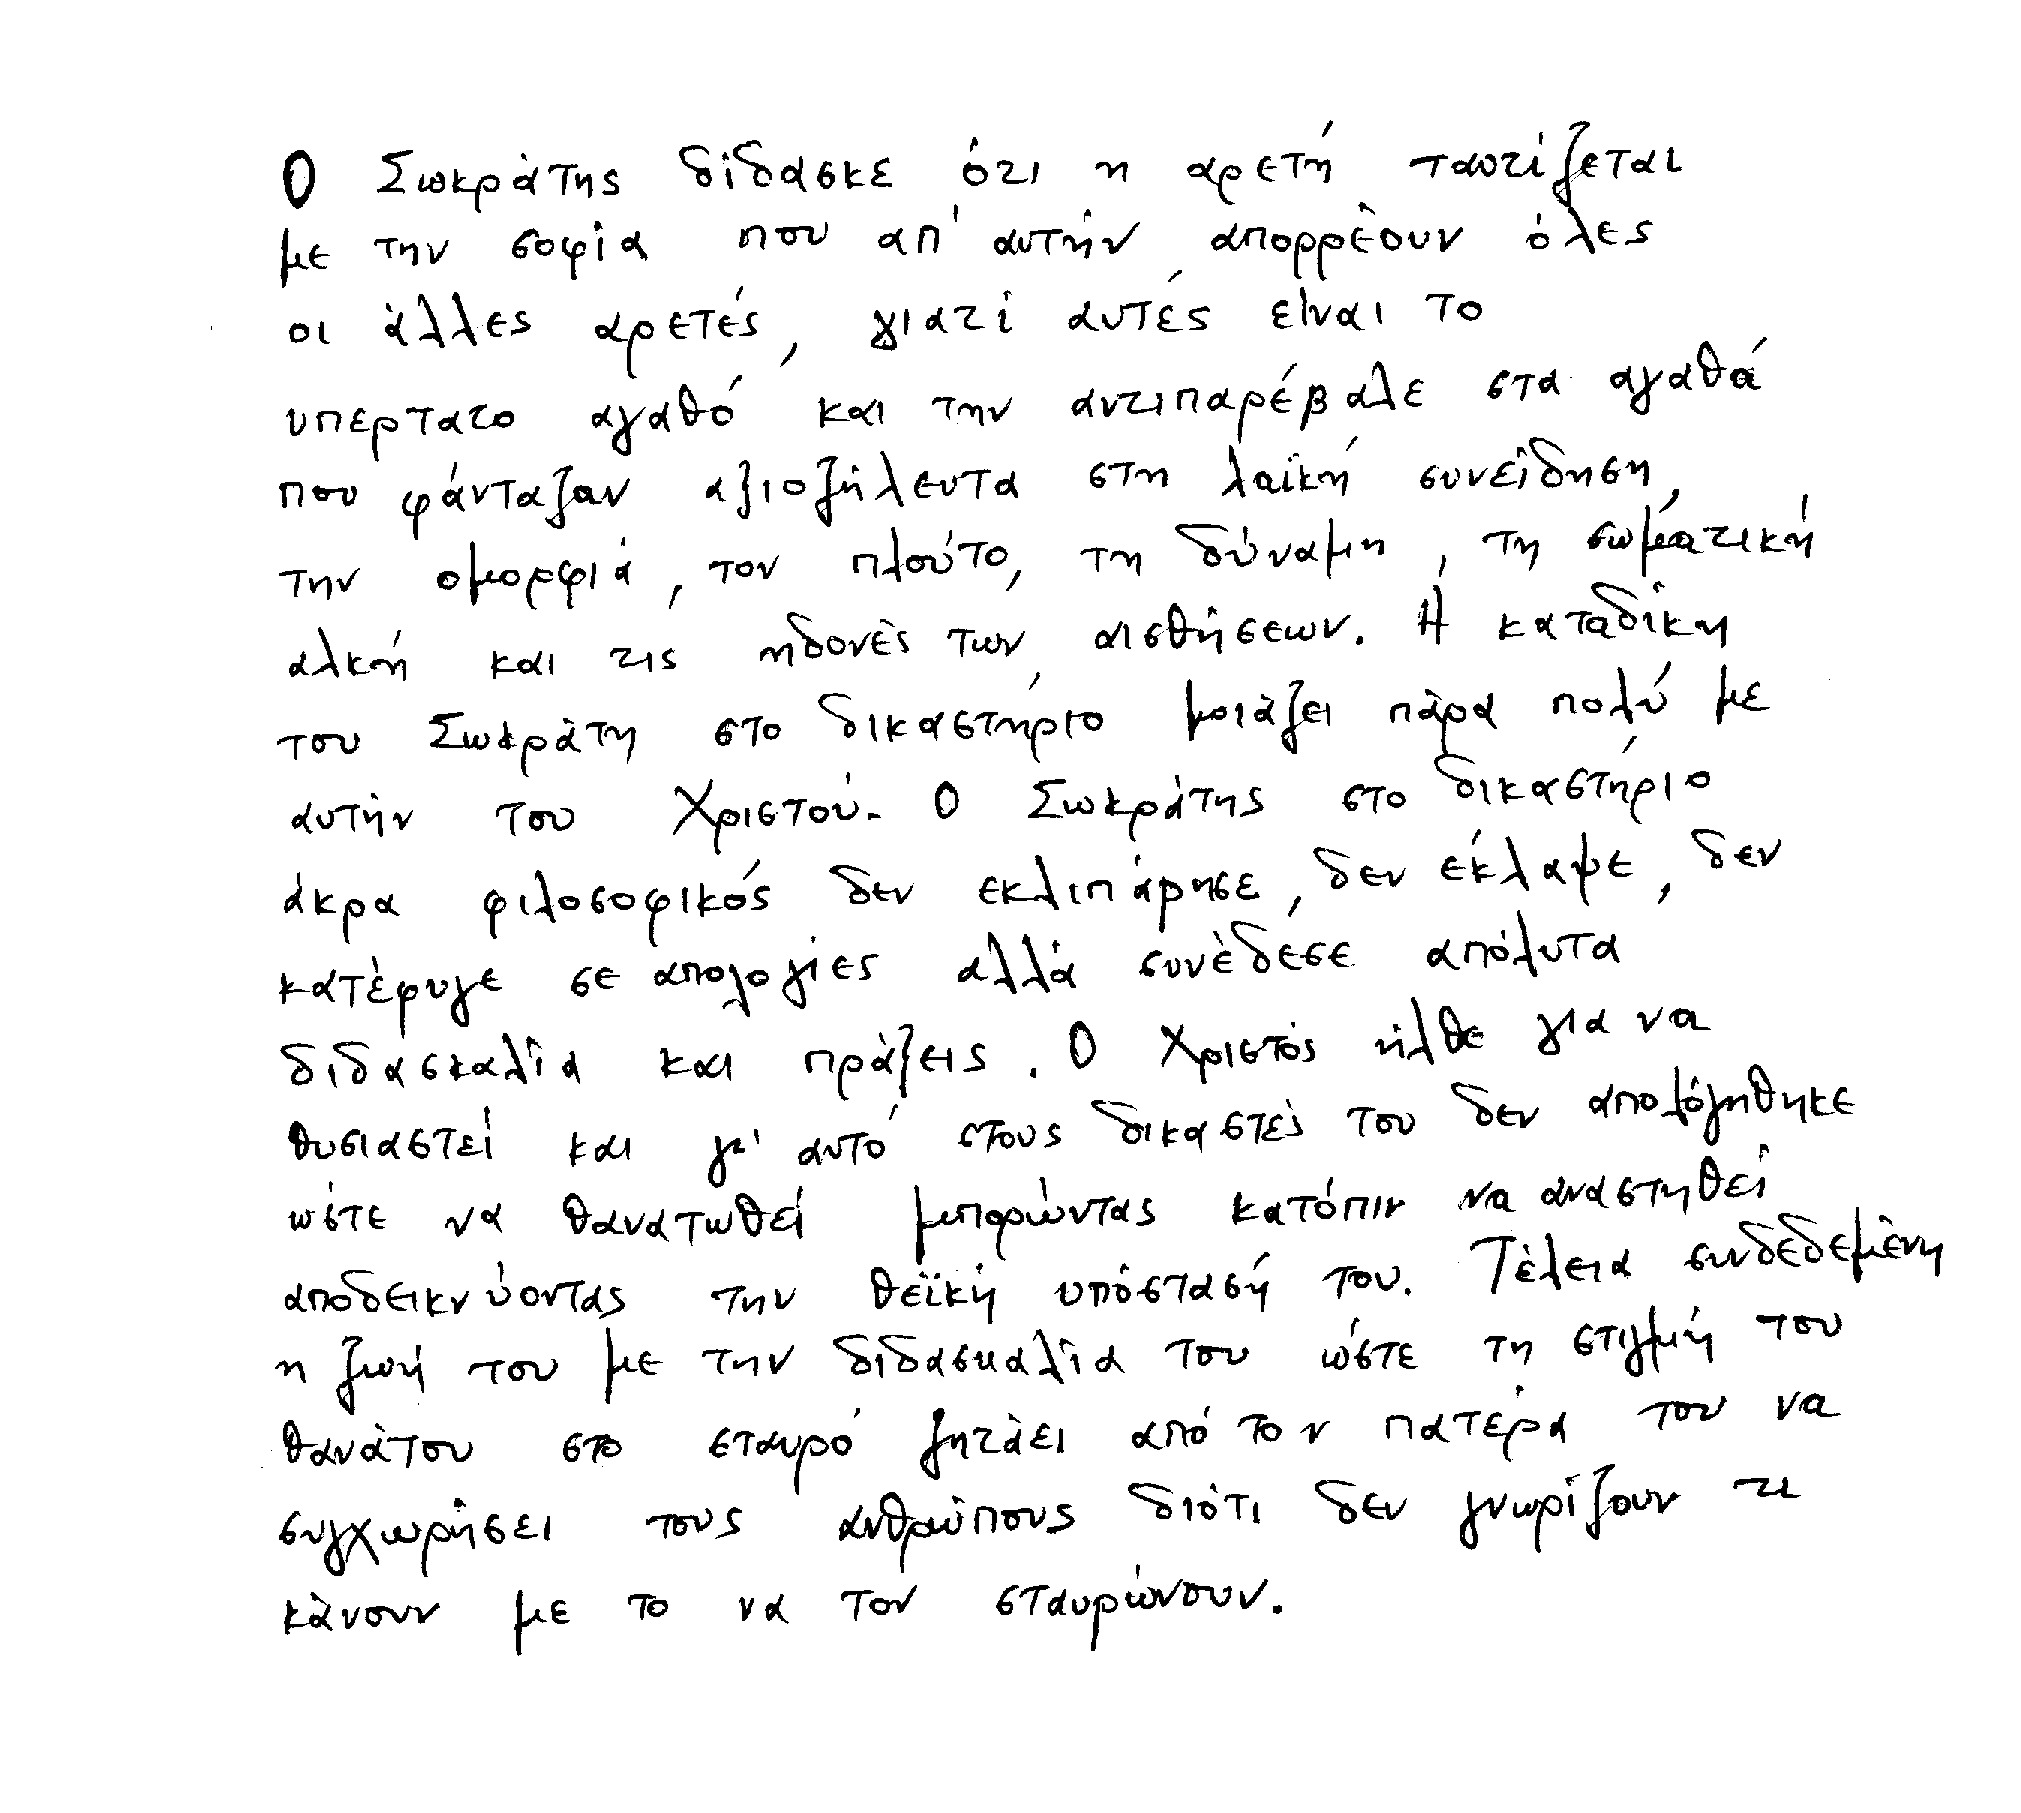 Ο Σωκράτης δίδασκε ότι η αρετή ταυτίζεται
με την σοφία που απ' αυτήν απορρέουν όλες
οι άλλες αρετές, γιατί αυτές είναι το
υπερτατο αγαθό και την αντιπαρέβαλε στα αγαθά
που φάνταζαν αξιοζήλευτα στη λαϊκή συνείδηση,
την ομορφιά, τον πλούτο, τη δύναμη, τη σωματική
αλκή και τις ηδονές των αισθήσεων. Η καταδίκη
του Σωκράτη στο δικαστήριο μοιάζει πάρα πολύ με
αυτήν του Χριστού. Ο Σωκράτης στο δικαστήριο
άκρα φιλοσοφικός δεν εκλιπάρησε, δεν έκλαψε, δεν
κατέφυγε σε απολογίες αλλά συνέδεσε απόλυτα
διδασκαλία και πράξεις. Ο Χριστός ήλθε για να
θυσιαστεί και γι' αυτό στους δικαστές του δεν απολόγηθηκε
ώστε να θανατωθεί μπορώντας κατόπιν να αναστηθεί
αποδεικνύοντας την θεϊκή υπόστασή του. Τέλεια συνδεδεμένη
η ζωή του με την διδασκαλία του ώστε τη στιγμή του
θανάτου στο σταυρό ζητάει από τον πατέρα του να
συγχωρήσει τους ανθρώπους διότι δεν γνωρίζουν τι
κάνουν με το να τον σταυρώνουν.